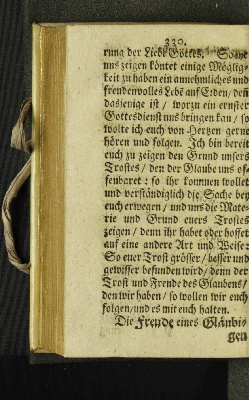 330.
rung der Liebe Gottes. So ihr
uns zeigen köntet einige Möglig-
keit zu haben ein annehmliches und
freudenvolles Lebē auf Erden/ deñ
dasjenige ist / worzu ein ernster
Gottesdienst uns bringen kan / so
wolte ich euch von Herzen gerne
hören und folgen. Ich bin bereit
euch zu zeigen den Grund unsers
Trostes / den der Glaube uns of-
fenbaret: so ihr kommen wollet
und verständiglich die Sache bey
euch erwegen / und uns die Mate-
rie und Grund euers Trostes
zeigen / denn ihr habet oder hoffet
auf eine andere Art und Weise:
So euer Trost grösser/ besser und
gewisser befunden wird/ denn der
Trost und Freude des Glaubens/
den wir haben / so wollen wir euch
folgen/und es mit euch halten.
Die Freude eines Gläubi-
gen